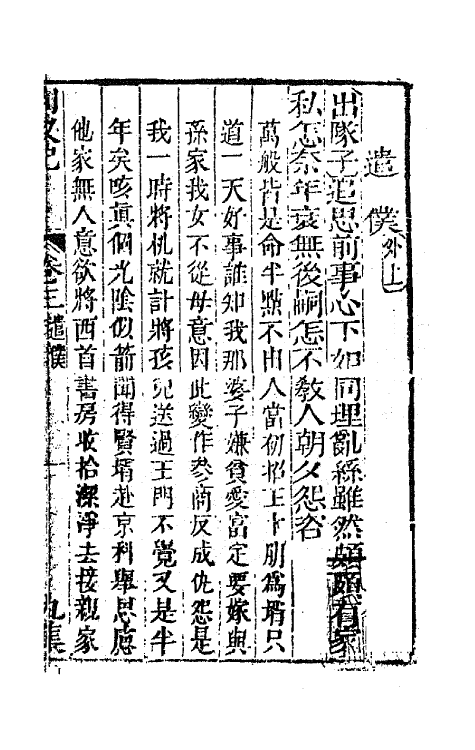 遣僕 外上
出隊子 追思前事心下如同理亂絲雖然頗有家
私怎奈年衰無後嗣怎不教人朝夕怨咨
萬般皆是命半點不由人當初招王十朋為壻只
道一天好事誰知我那婆子嫌貧愛富定要嫁與
孫家我女不從母意因此變作參商反成仇怨是
我一時將机就計將孩兒送過王門不覺又是半
年矣咳真個光陰似箭聞得賢壻赴京科舉思慮
他家無人意欲將西首書房收拾潔淨去接親家
卷三 遣僕
九集